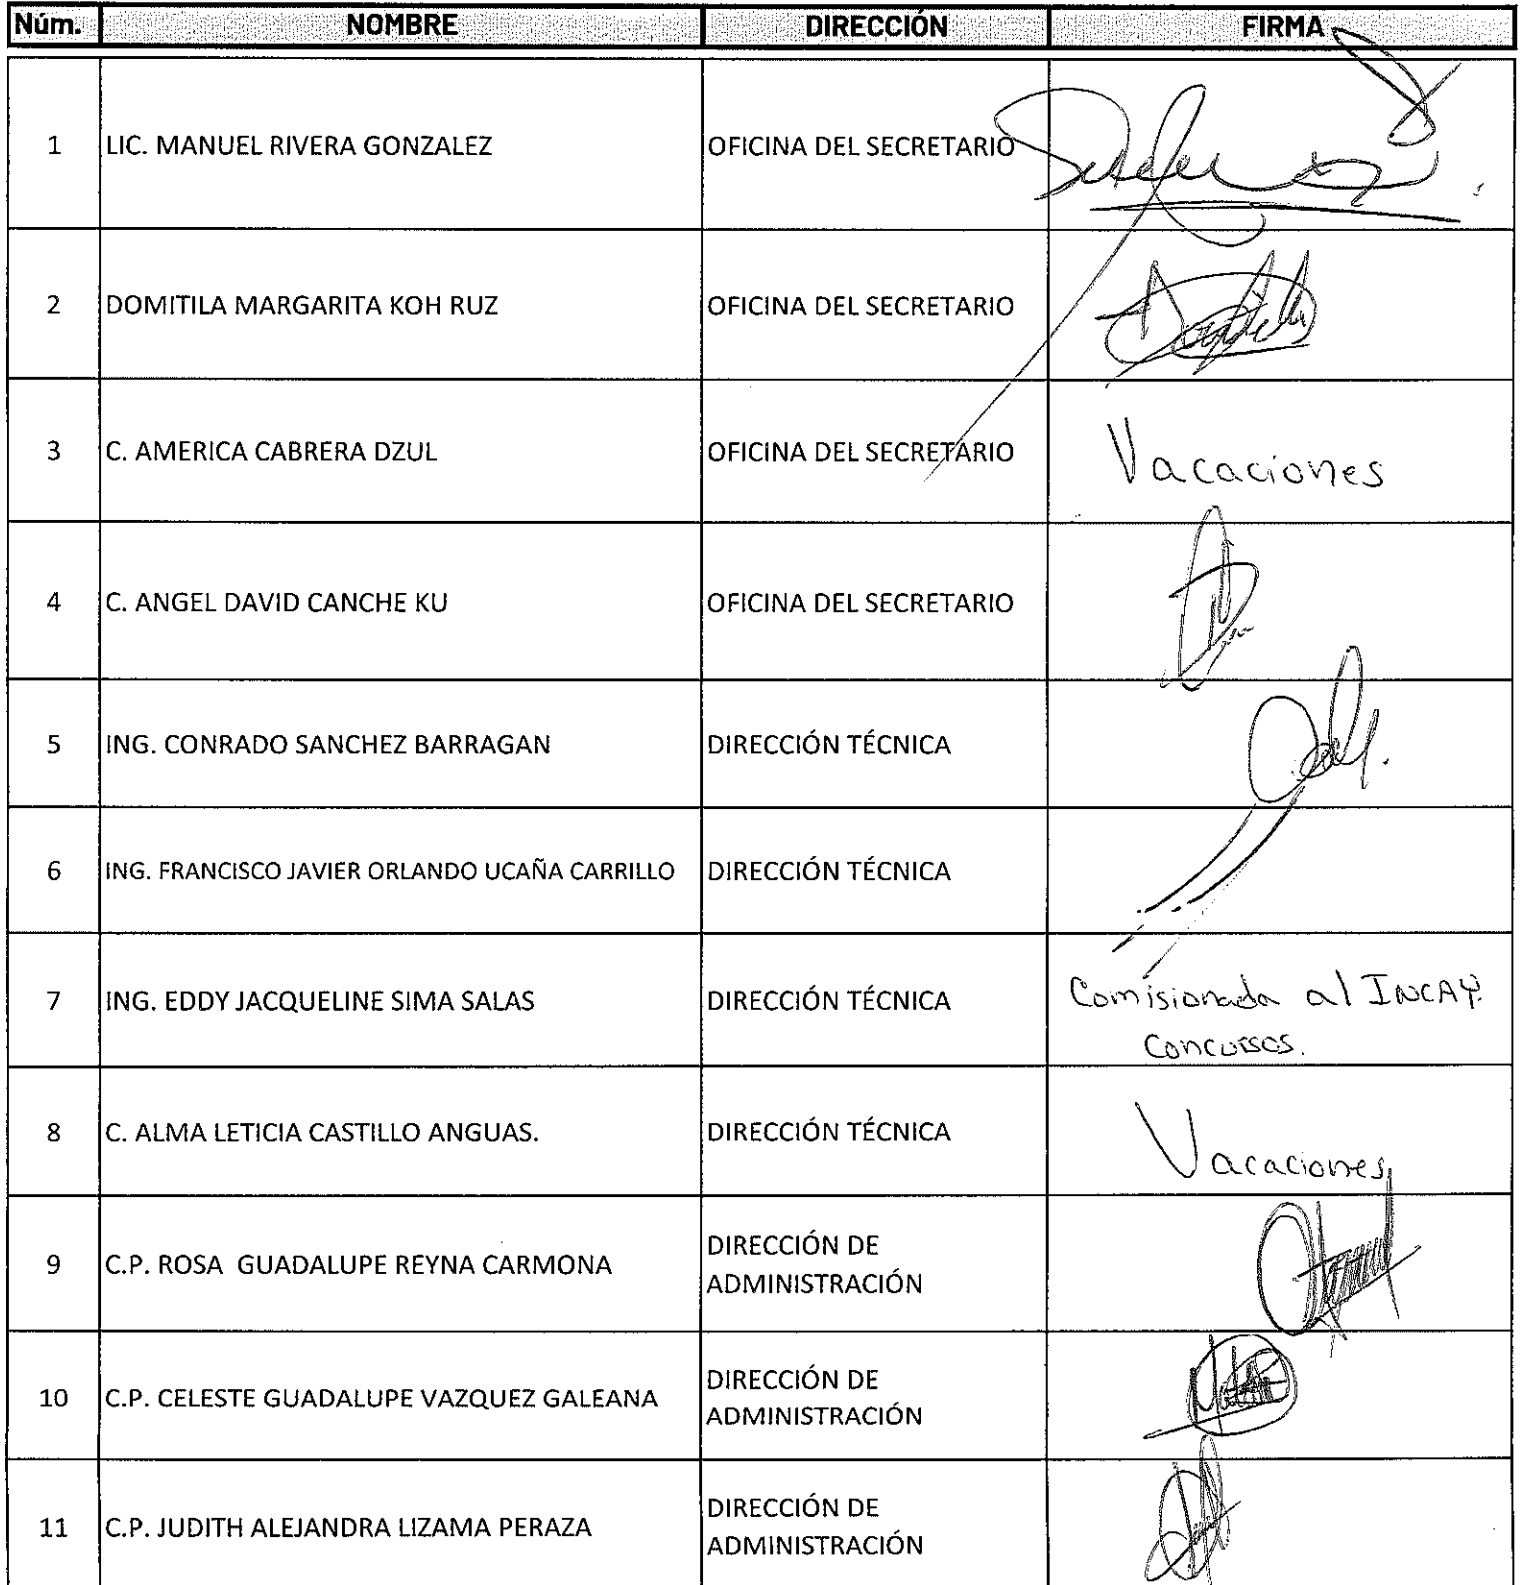 Núm. NOMBRE DIRECCIÓN FIRMA
1 LIC. MANUEL RIVERA GONZALEZ OFICINA DEL SECRETARIO
2 DOMITILA MARGARITA KOH RUZ OFICINA DEL SECRETARIO
3 C. AMERICA CABRERA DZUL OFICINA DEL SECRETARIO Vacaciones
4 C. ANGEL DAVID CANCHE KU OFICINA DEL SECRETARIO
5 ING. CONRADO SANCHEZ BARRAGAN DIRECCIÓN TÉCNICA
6 ING. FRANCISCO JAVIER ORLANDO UCAÑA CARRILLO DIRECCIÓN TÉCNICA
7 ING. EDDY JACQUELINE SIMA SALAS DIRECCIÓN TÉCNICA Comisionada al INCAY
Concursos.
8 C. ALMA LETICIA CASTILLO ANGUAS. DIRECCIÓN TÉCNICA Vacaciones
9 C.P. ROSA GUADALUPE REYNA CARMONA DIRECCIÓN DE
ADMINISTRACIÓN
10 C.P. CELESTE GUADALUPE VAZQUEZ GALEANA DIRECCIÓN DE
ADMINISTRACIÓN
11 C.P. JUDITH ALEJANDRA LIZAMA PERAZA DIRECCIÓN DE
ADMINISTRACIÓN